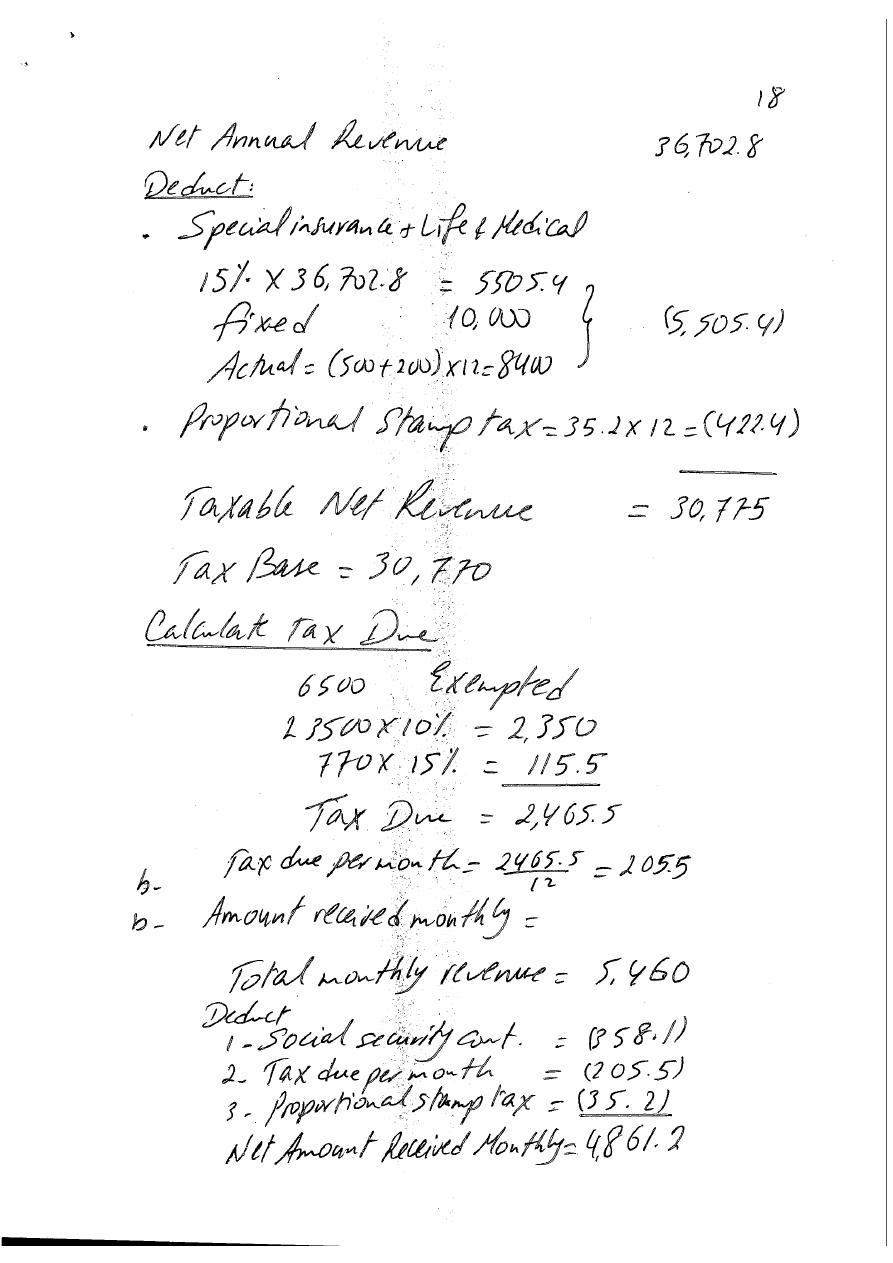 18
Net Annual Revenue 36,702.8
Deduct:
• Special insurance + Life & Medical
15% X 36,702.8 = 5505.4
fixed 10,000 } (5,505.4)
Actual = (500+200)x12=8400
• Proportional Stamp tax = 35.2 x 12 = (422.4)
Taxable Net Revenue = 30,775
Tax Base = 30,770
Calculate Tax Due
6500 Exempted
23500 X 10% = 2,350
770 X 15% = 115.5
Tax Due = 2,465.5
b- Tax due per month = 2465.5/12 = 205.5
b- Amount received monthly =
Total monthly revenue = 5,460
Deduct
1- Social security cont. = (358.1)
2- Tax due per month = (205.5)
3- Proportional stamp tax = (35.2)
Net Amount Received Monthly = 4,861.2